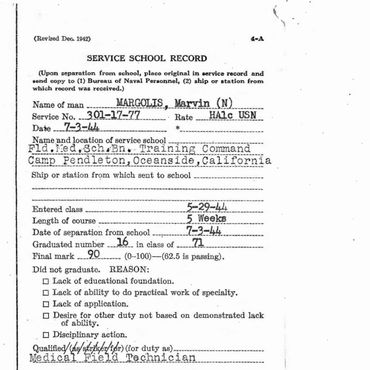 (Revised Dec. 1942) 4-A
SERVICE SCHOOL RECORD
(Upon separation from school, place original in service record and
send copy to (1) Bureau of Naval Personnel, (2) ship or station from
which record was received.)
Name of man MARGOLIS, Marvin (N)
Service No. 301-17-77 Rate HA1c USN
Date 7-3-44 *
Name and location of service school
Fld.Med.Sch.Bn. Training Command
Camp Pendleton,Oceanside,California
Ship or station from which sent to school
Entered class 5-29-44
Length of course 5 Weeks
Date of separation from school 7-3-44
Graduated number 16 in class of 71
Final mark 90 (0-100)—(62.5 is passing).
Did not graduate. REASON:
☐ Lack of educational foundation.
☐ Lack of ability to do practical work of specialty.
☐ Lack of application.
☐ Desire for other duty not based on demonstrated lack
of ability.
☐ Disciplinary action.
Qualified (as/striker/for) (for duty as)
Medical Field Technician